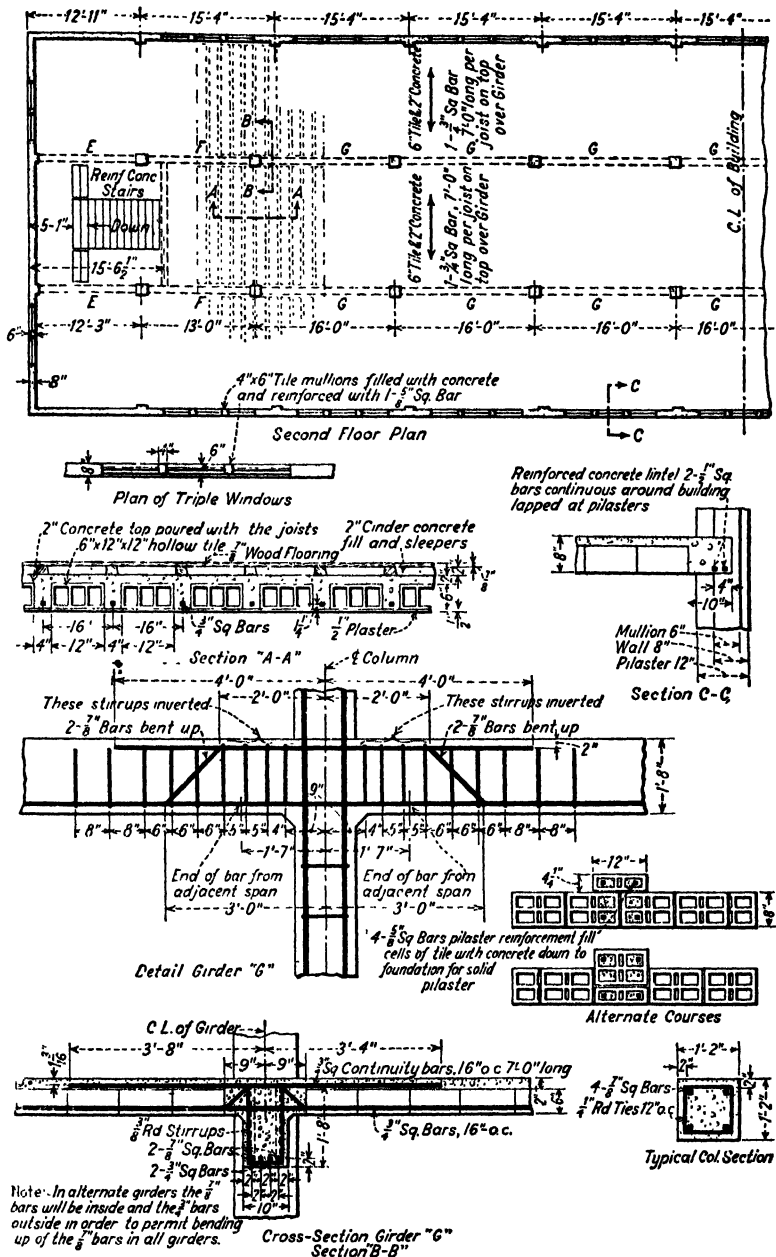 12'-11"
15'-4"
15'-4"
15'-4"
15'-4"
15'-4"
6"Tile & 2" Concrete
1-3/4" Sq Bar
7'-0" long per
joist on top
over Girder
B
B
E
F
G
G
G
G
Reinf Conc
Stairs
Down
A
A
5'-1"
15'-6 1/2"
6"Tile & 2" Concrete
1-3/4" Sq Bar, 7'-0"
long per joist on
top over Girder
C.L. of Building
E
F
G
G
G
G
12'-3"
13'-0"
16'-0"
16'-0"
16'-0"
16'-0"
6"
8"
4"x6" Tile mullions filled with concrete
and reinforced with 1-5/8" Sq. Bar
C
C
Second Floor Plan
8"
4"
6"
Plan of Triple Windows
Reinforced concrete lintel 2- Sq
bars continuous around building
lapped at pilasters
8"
4"
10"
Mullion 6"
Wall 8"
Pilaster 12"
Section C-C
2" Concrete top poured with the joists
6"x12"x12" hollow tile
7/8" Wood Flooring
2" Cinder concrete
fill and sleepers
16"
16"
3/4" Sq Bars
1 1/4"
1/2" Plaster
4"
12"
4"
12"
Section "A-A"
℄ Column
4'-0"
4'-0"
These stirrups inverted
2'-0"
2'-0"
These stirrups inverted
2-7/8" Bars bent up
2-7/8" Bars bent up
2"
1'-8"
9"
8"
8"
6"
6"
6"
5"
5"
4"
4"
5"
5"
6"
6"
6"
8"
8"
1'-7"
1'7"
End of bar from
adjacent span
End of bar from
adjacent span
3'-0"
3'-0"
Detail Girder "G"
12"
4 1/4"
8"
4-5/8" Sq Bars pilaster reinforcement fill
cells of tile with concrete down to
foundation for solid
pilaster
Alternate Courses
C L. of Girder
3'-8"
3'-4"
9"
9"
3/4" Sq Continuity bars, 16" o c 7'-0" long
2"
6"
1'-8"
3/8" Rd Stirrups
2-7/8" Sq. Bars
2-3/4" Sq Bars
3/4" Sq. Bars, 16" o.c.
2"
2"
2"
2"
2"
10"
Note:- In alternate girders the 7/8"
bars will be inside and the 3/4" bars
outside in order to permit bending
up of the 7/8" bars in all girders.
Cross-Section Girder "G"
Section "B-B"
1'-2"
2"
4-7/8" Sq Bars
1/4" Rd Ties 12" o.c
2"
1'-2"
Typical Col. Section